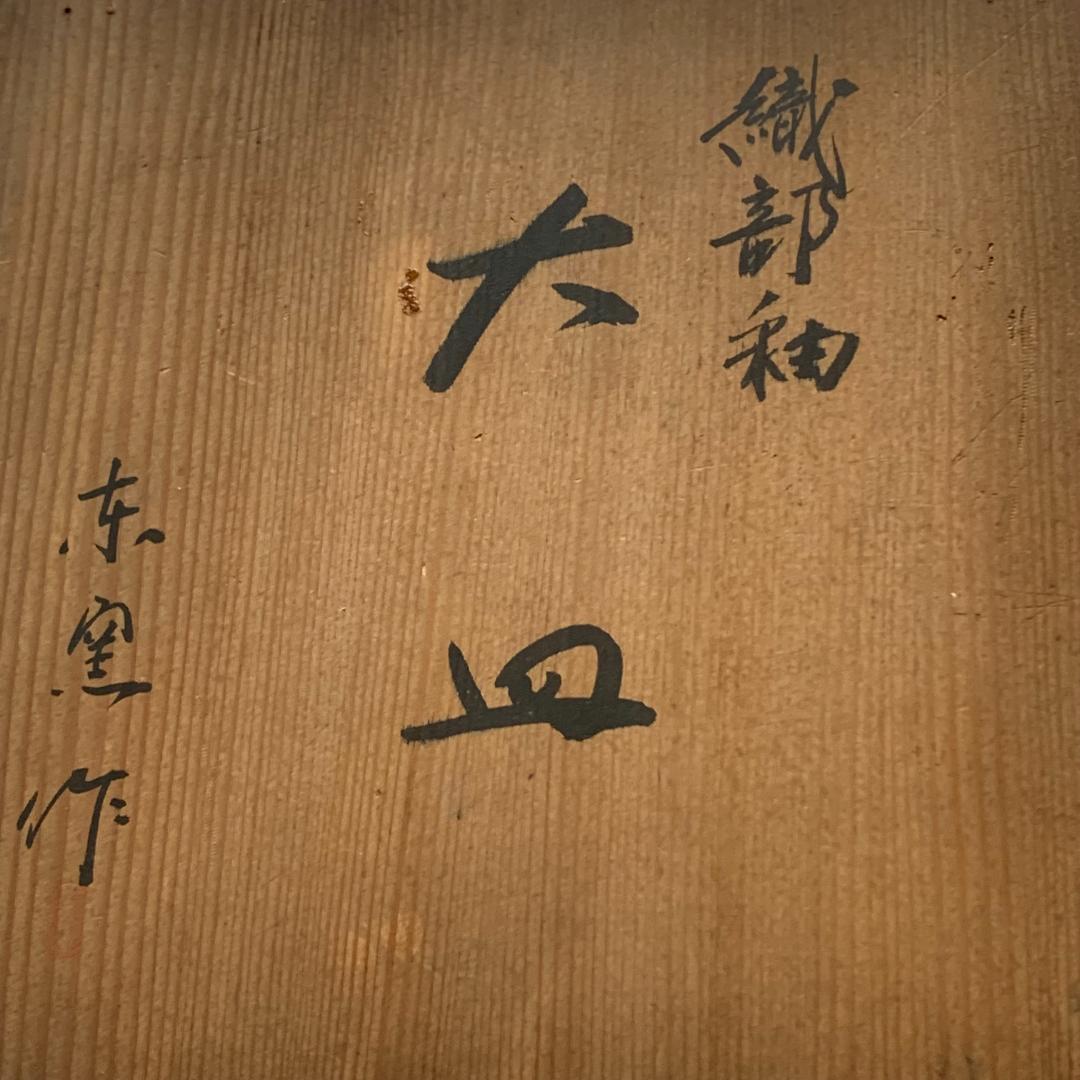 織部釉
大皿
东窯作